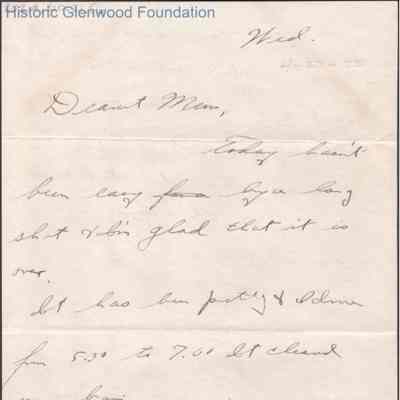 Historic Glenwood Foundation
Wed.
Dearest Mom,
Today hasn't
been easy by a long
shot & I'm glad that it is
over.
It has been &
from 5:30 to 7:00 It cleared